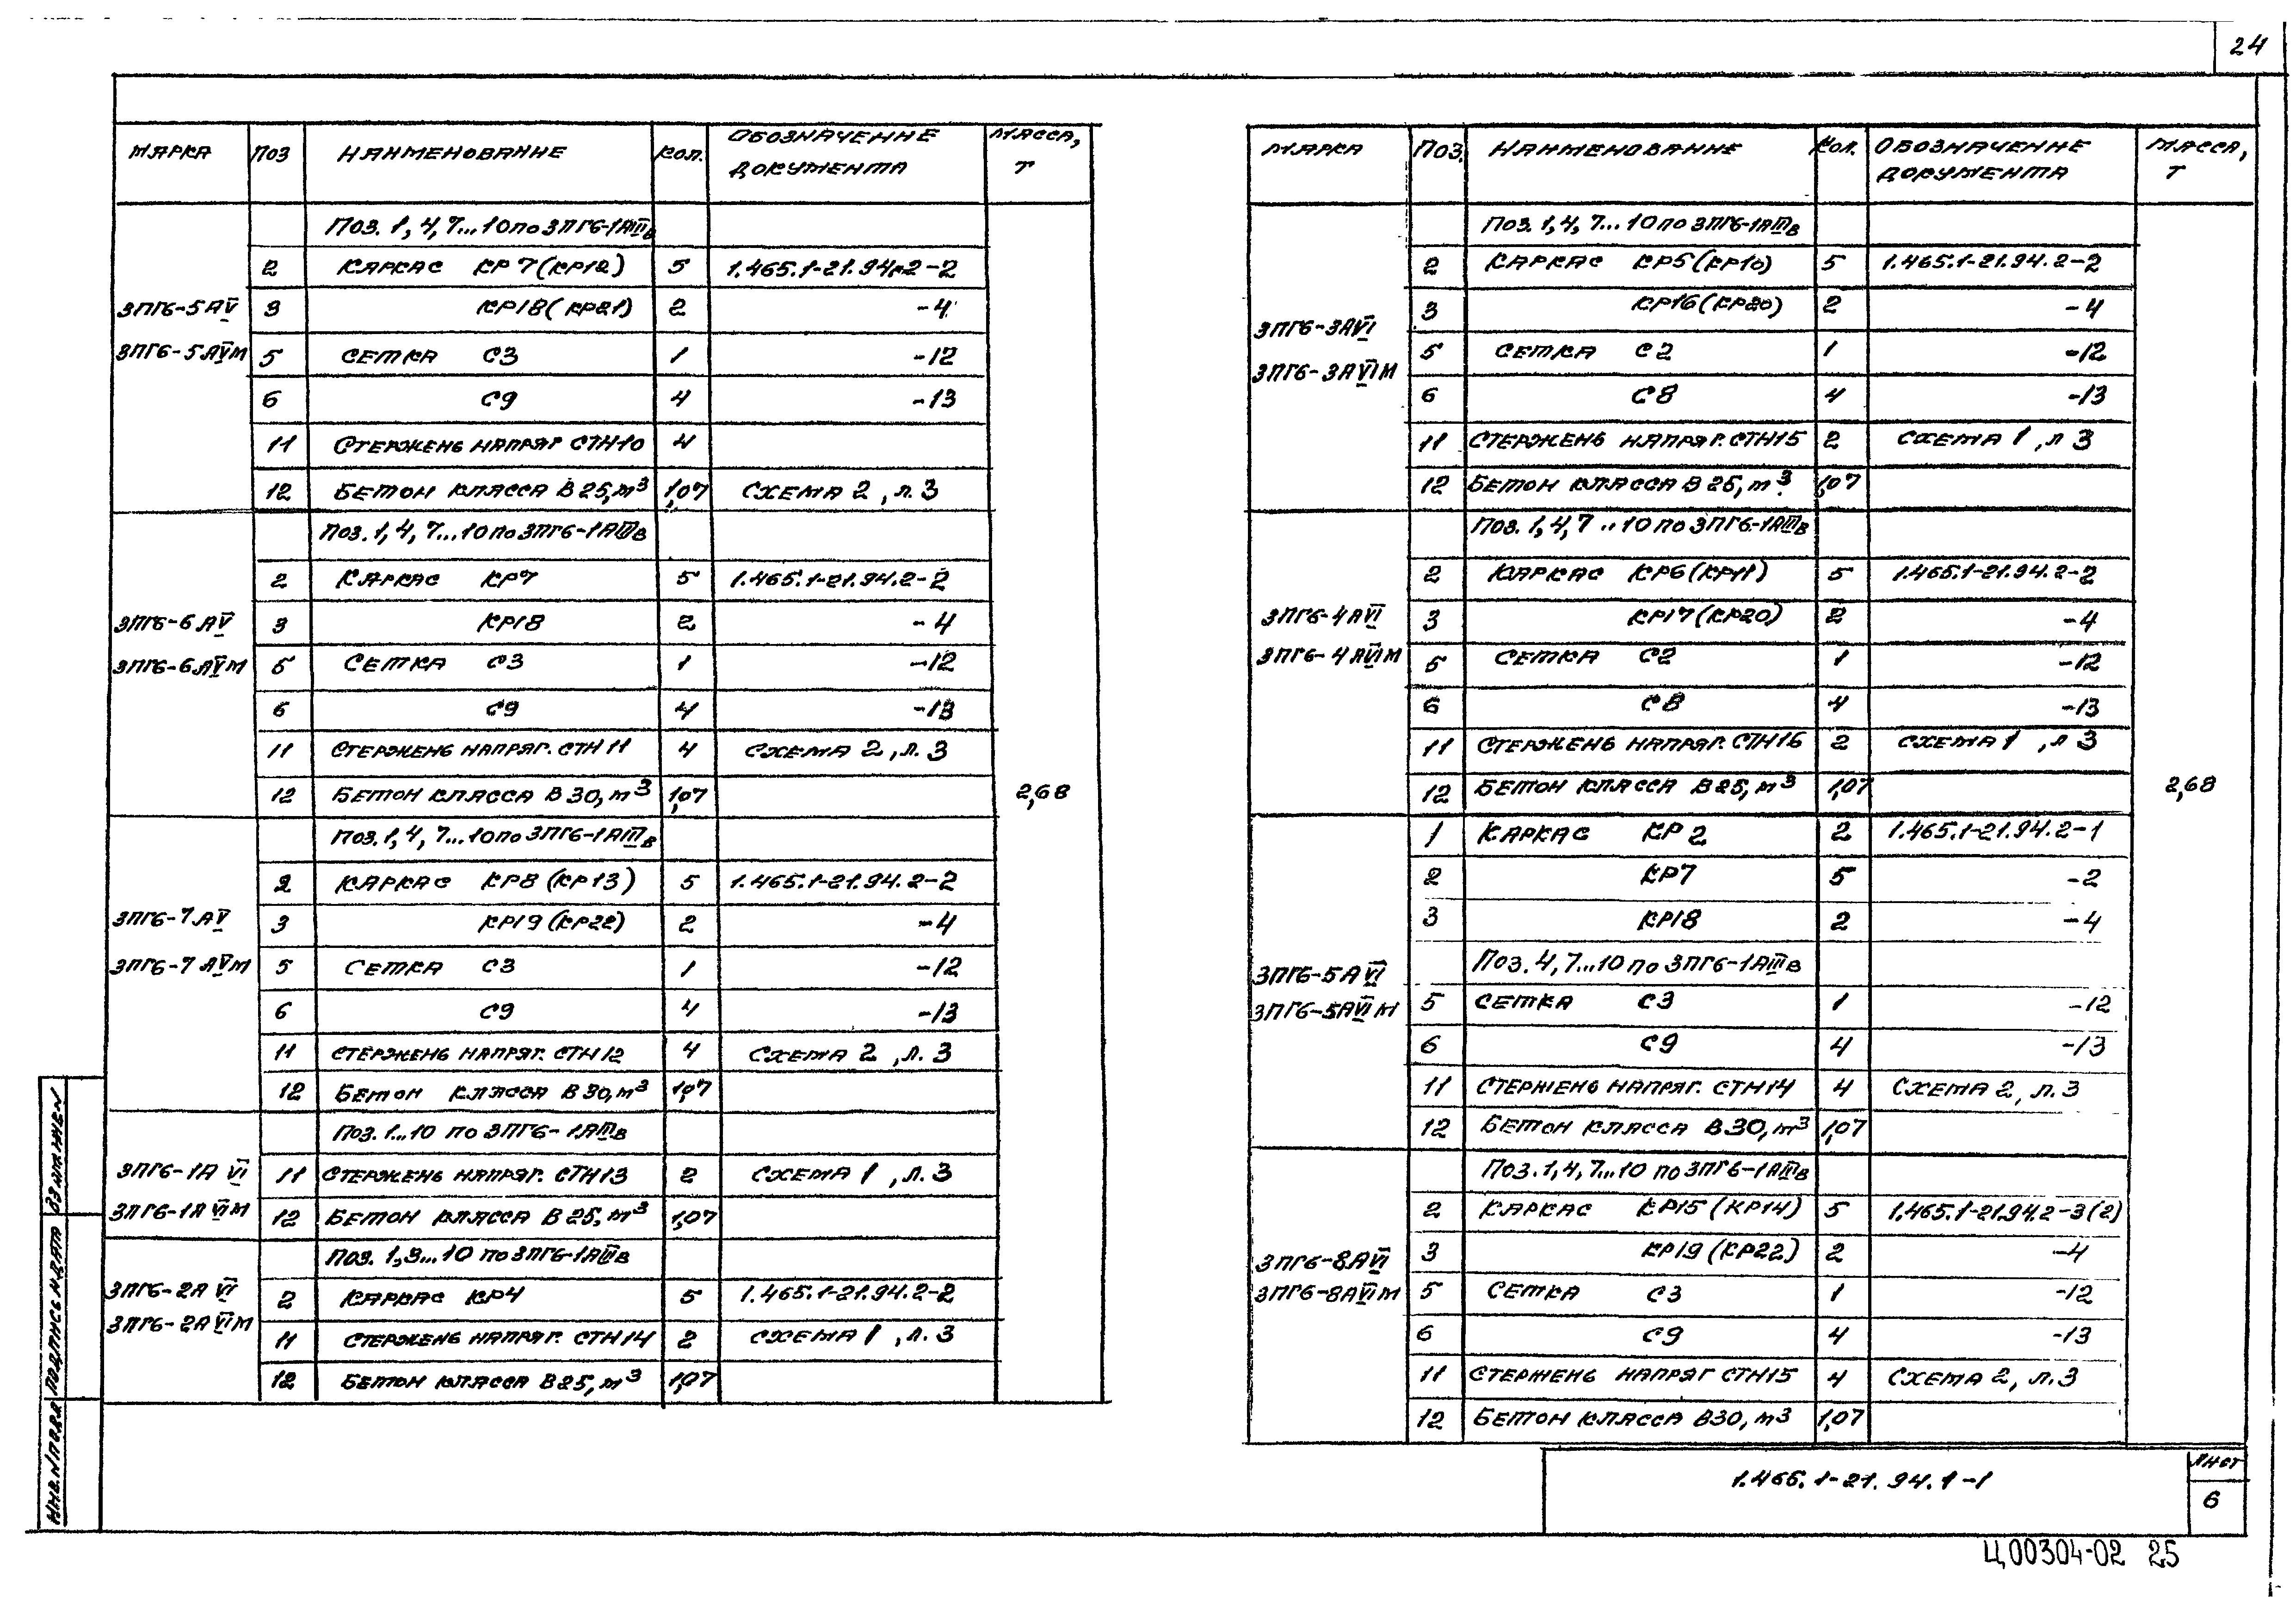 24
МАРКА ПОЗ НАИМЕНОВАНИЕ КОЛ. ОБОЗНАЧЕНИЕ ДОКУМЕНТА МАССА, Т
Поз. 1, 4, 7...10 по 3ПГ6-1АIIIв
2 КАРКАС КР7(КР12) 5 1.465.1-21.94.2-2
3ПГ6-5АV 3 КР18(КР21) 2 -4
3ПГ6-5АVМ 5 СЕТКА С3 1 -12
6 С9 4 -13
11 СТЕРЖЕНЬ НАПРЯГ СТН10 4
12 БЕТОН КЛАССА В25, м³ 1,07 СХЕМА 2, л.3
Поз. 1, 4, 7...10 по 3ПГ6-1АIIIв
2 КАРКАС КР7 5 1.465.1-21.94.2-2
3ПГ6-6АV 3 КР18 2 -4
3ПГ6-6АVМ 5 СЕТКА С3 1 -12
6 С9 4 -13
11 СТЕРЖЕНЬ НАПРЯГ. СТН11 4 СХЕМА 2, л.3
12 БЕТОН КЛАССА В30, м³ 1,07 2,68
Поз. 1, 4, 7...10 по 3ПГ6-1АIIIв
2 КАРКАС КР8(КР13) 5 1.465.1-21.94.2-2
3ПГ6-7АV 3 КР19(КР22) 2 -4
3ПГ6-7АVМ 5 СЕТКА С3 1 -12
6 С9 4 -13
11 СТЕРЖЕНЬ НАПРЯГ. СТН12 4 СХЕМА 2, л.3
12 БЕТОН КЛАССА В30, м³ 1,07
Поз. 1...10 по 3ПГ6-1АIIIв
3ПГ6-1АVI 11 СТЕРЖЕНЬ НАПРЯГ. СТН13 2 СХЕМА 1, л.3
3ПГ6-1АVIМ 12 БЕТОН КЛАССА В25, м³ 1,07
Поз. 1,3...10 по 3ПГ6-1АIIIв
3ПГ6-2АVI 2 КАРКАС КР4 5 1.465.1-21.94.2-2
3ПГ6-2АVIМ 11 СТЕРЖЕНЬ НАПРЯГ. СТН14 2 СХЕМА 1, л.3
12 БЕТОН КЛАССА В25, м³ 1,07
МАРКА ПОЗ. НАИМЕНОВАНИЕ КОЛ. ОБОЗНАЧЕНИЕ ДОКУМЕНТА МАССА, Т
Поз. 1, 4, 7...10 по 3ПГ6-1АIIIв
2 КАРКАС КР5(КР10) 5 1.465.1-21.94.2-2
3ПГ6-3АVI 3 КР16(КР20) 2 -4
3ПГ6-3АVIМ 5 СЕТКА С2 1 -12
6 С8 4 -13
11 СТЕРЖЕНЬ НАПРЯГ. СТН15 2 СХЕМА 1, л 3
12 БЕТОН КЛАССА В25, м³ 1,07
Поз. 1, 4, 7 ..10 по 3ПГ6-1АIIIв
2 КАРКАС КР6(КР11) 5 1.465.1-21.94.2-2
3ПГ6-4АVI 3 КР17(КР20) 2 -4
3ПГ6-4АVIМ 5 СЕТКА С2 1 -12
6 С8 4 -13
11 СТЕРЖЕНЬ НАПРЯГ. СТН16 2 СХЕМА 1, л 3
12 БЕТОН КЛАССА В25, м³ 1,07 2,68
1 КАРКАС КР2 2 1.465.1-21.94.2-1
2 КР7 5 -2
3 КР18 2 -4
Поз. 4, 7...10 по 3ПГ6-1АIIIв
3ПГ6-5АVI 5 СЕТКА С3 1 -12
3ПГ6-5АVIМ 6 С9 4 -13
11 СТЕРЖЕНЬ НАПРЯГ. СТН14 4 СХЕМА 2, л.3
12 БЕТОН КЛАССА В30, м³ 1,07
Поз. 1, 4, 7...10 по 3ПГ6-1АIIIв
2 КАРКАС КР15(КР14) 5 1.465.1-21.94.2-3(2)
3ПГ6-8АVI 3 КР19(КР22) 2 -4
3ПГ6-8АVIМ 5 СЕТКА С3 1 -12
6 С9 4 -13
11 СТЕРЖЕНЬ НАПРЯГ СТН15 4 СХЕМА 2, л.3
12 БЕТОН КЛАССА В30, м³ 1,07
ИНВ.№ПОДЛ ПОДПИСЬ И ДАТА ВЗАМ ИНВ№
1.465.1-21.94.1-1
ЛИСТ
6
Ц00304-02 25